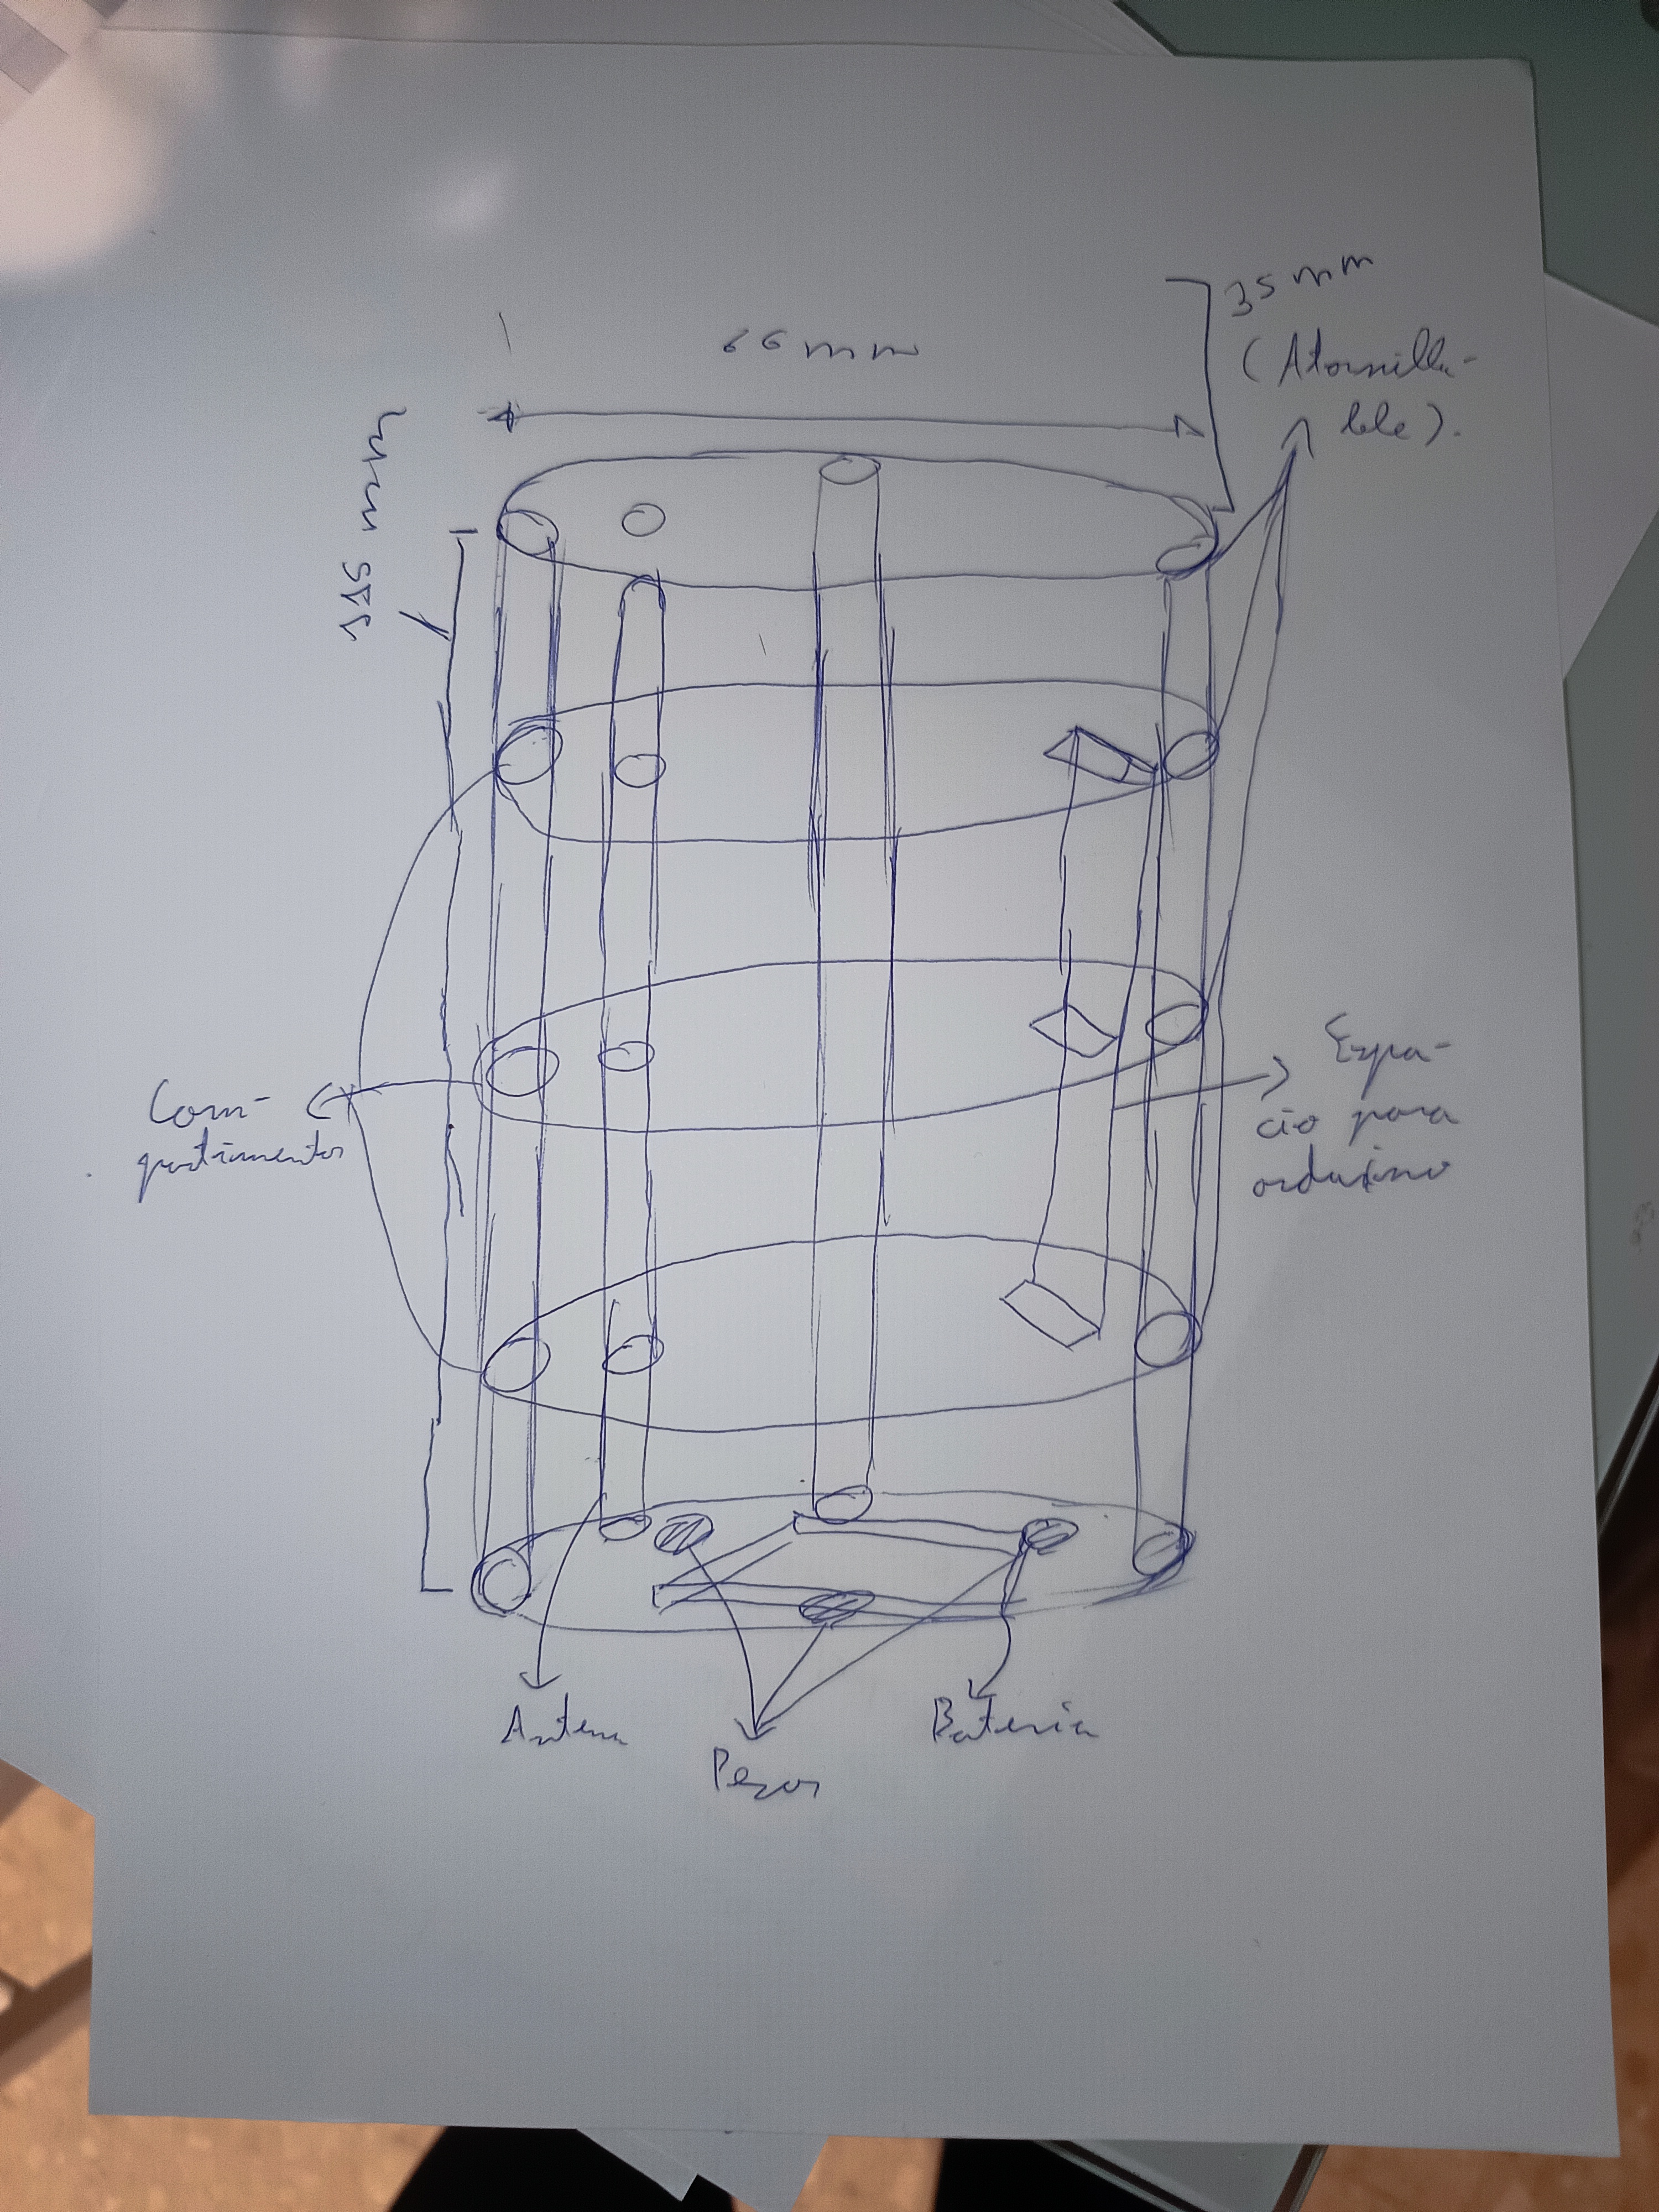 35 mm
(Atornilla-
ble).
66 mm
Com-
partimentos
Espa-
cio para
arduino
Antena
Pesos
Bateria